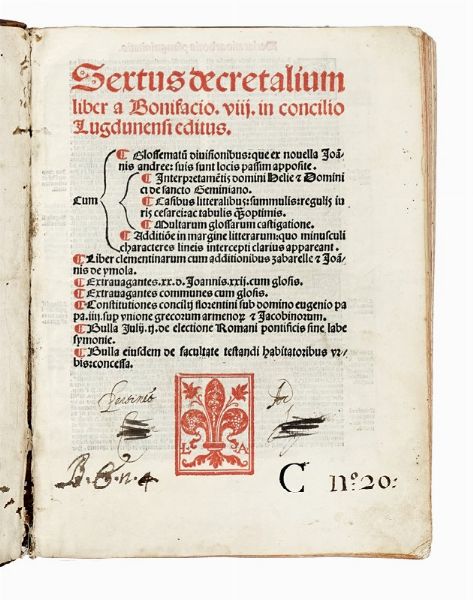 Sextus decretalium
liber a Bonifacio. viij. in concilio
Lugdunensi editus.
¶ Glossematū divisionibus: que ex novella Ioā
nis andree: suis sunt locis passim apposite.
¶ Interpretamētis domini Helie & Domini
ci de sancto Geminiano.
Cum
¶ Casibus litteralibus: summulis: regulis iu
ris cesarei: ac tabulis q̄optimis.
¶ Multarum glossarum castigatione.
¶ Additiōe in margine litterarum: quo minusculi
characteres lineis intercepti clarius appareant.
¶ Liber clementinarum cum additionibus zabarelle & Ioā
nis de ymola.
¶ Extravagantes. xx. d. Joannis. xxij. cum glosis.
¶ Extravagantes communes cum glosis.
¶ Constitutiones concilij florentini sub domino eugenio pa
pa. iiij. sup vnione grecorum armenor & Iacobinorum.
¶ Bulla Julij. ij. de electione Romani pontificis sine labe
symonie.
¶ Bulla eiusdem de facultate testandi habitatoribus vr-
bis: concessa.
L A
B. 6. n. 4
C nº. 20: